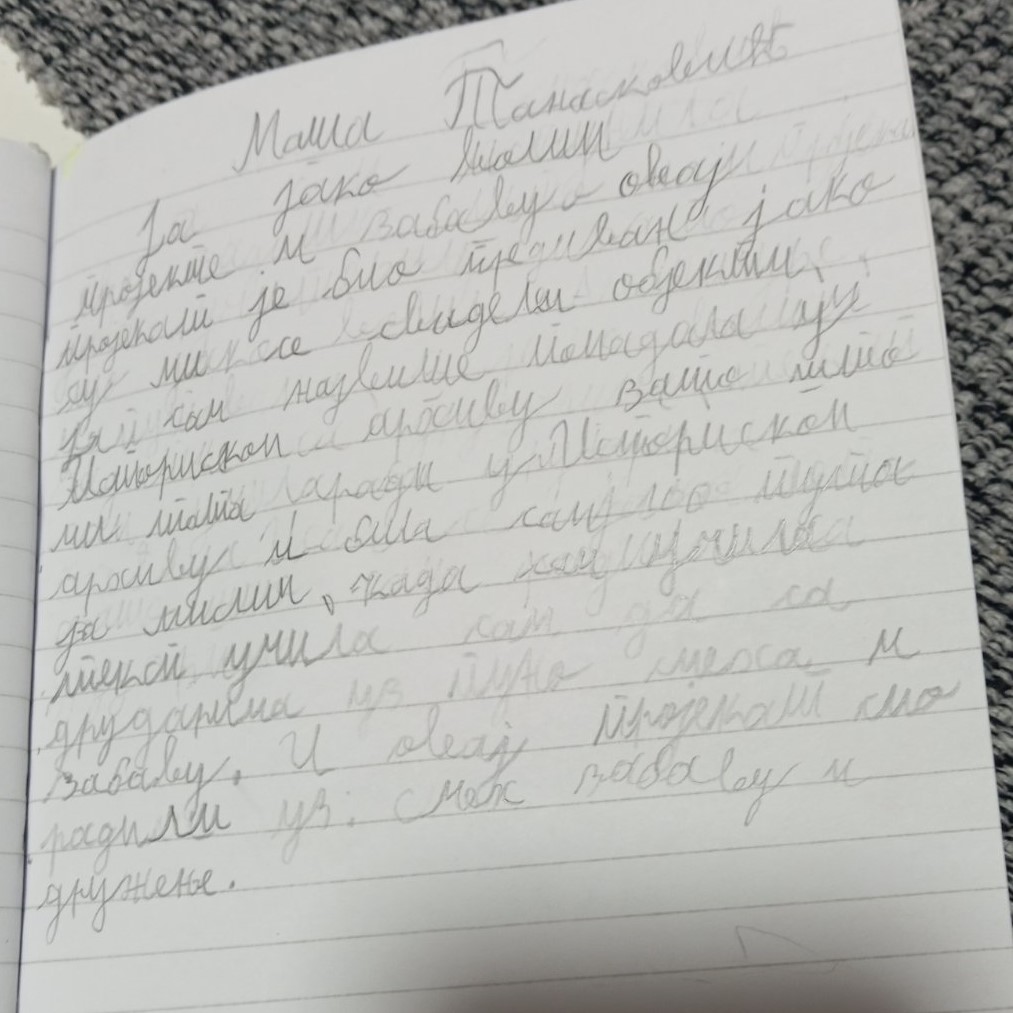 Маша Танасковић
Ја јако волим
пројекте и забаву а овај
пројекат је био предиван јако
су ми се свидели објекти.
Ја сам највише попадала у
Историском архиву зато што
ми тата ради у Историском
архиву и била сам 100 пута
ја мислим, када сам ишла
учила сам да са
другарима уз пуно смеха и
забаву. И овај пројекат смо
радили уз. смех забаву и
дружење.